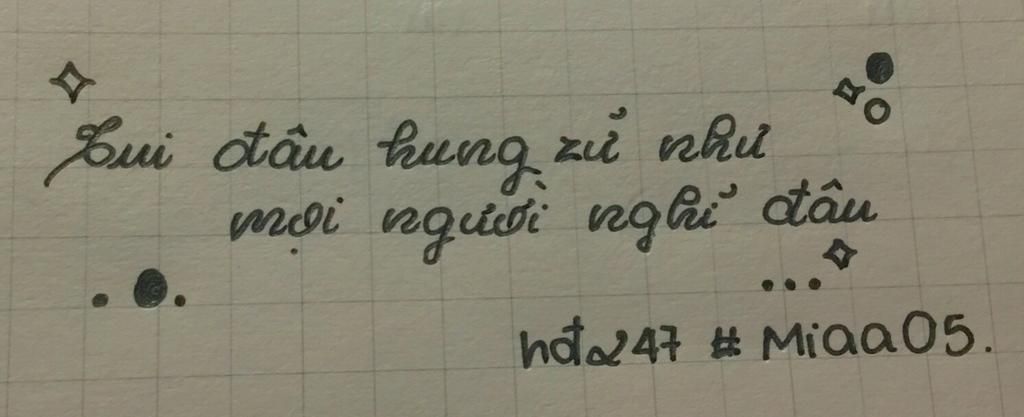 Tui đâu hung zử như
mọi người nghỉ đâu
hđa247 # Miaa05.